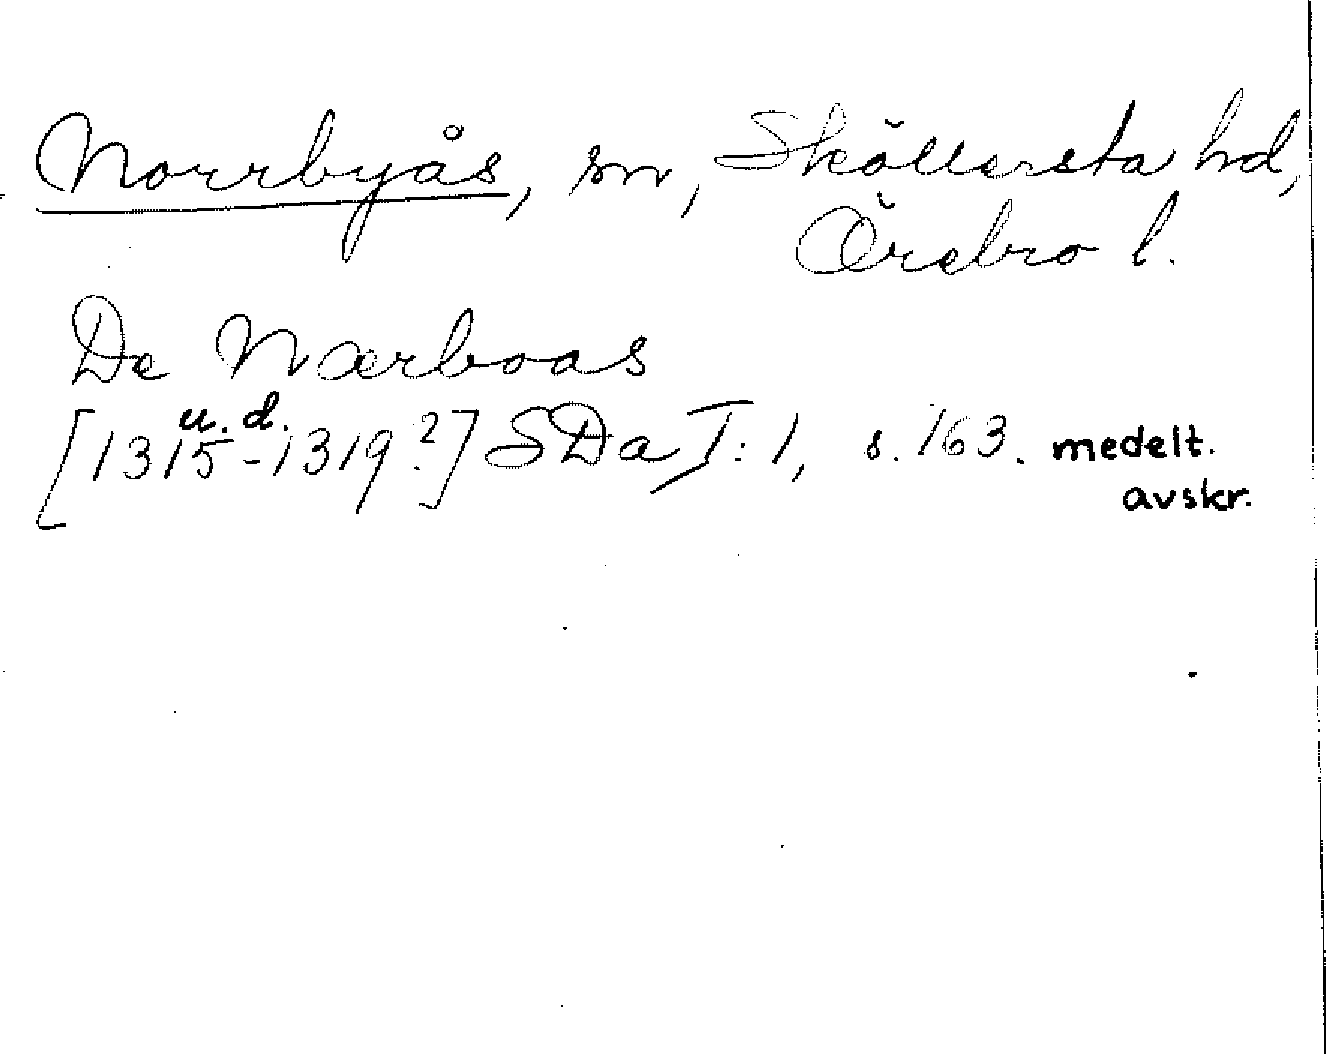 Norrbyås, sn, Sköllersta hd,
Örebro l.
De Nærboas
u. d.
[1315-1319?] SDa I:1, s. 163. medelt.
avskr.